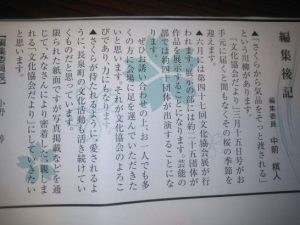 編集後記
編集委員 中前 槇人
▲「さくらから気品をそっと渡される」
という川柳があります。
「文化協会だより」三月十五日号がお
手元に届くと間もなくその桜の季節を
迎えます。
▲六月には第四十七回文化協会展が行
われます。展示の部には約二十五団体が
作品を展示することになります。芸能の
部では約四十団体が出演することにな
ります。
ぜひお誘い合わせの上、お一人でも多
くの方に会場に足を運んでいただきた
いと思います。それが文化協会のよろこ
びであり、力にもなります。
▲さくらが待たれるように、愛されるよ
うに、長泉町の文化活動も活き続けてい
くものだと思ってます。
限られた紙面ですが写真掲載などを通
してみなさんにより密着した、親しま
れる「文化協会だより」にしていきたい
と思います。
【編集委員長】 小野